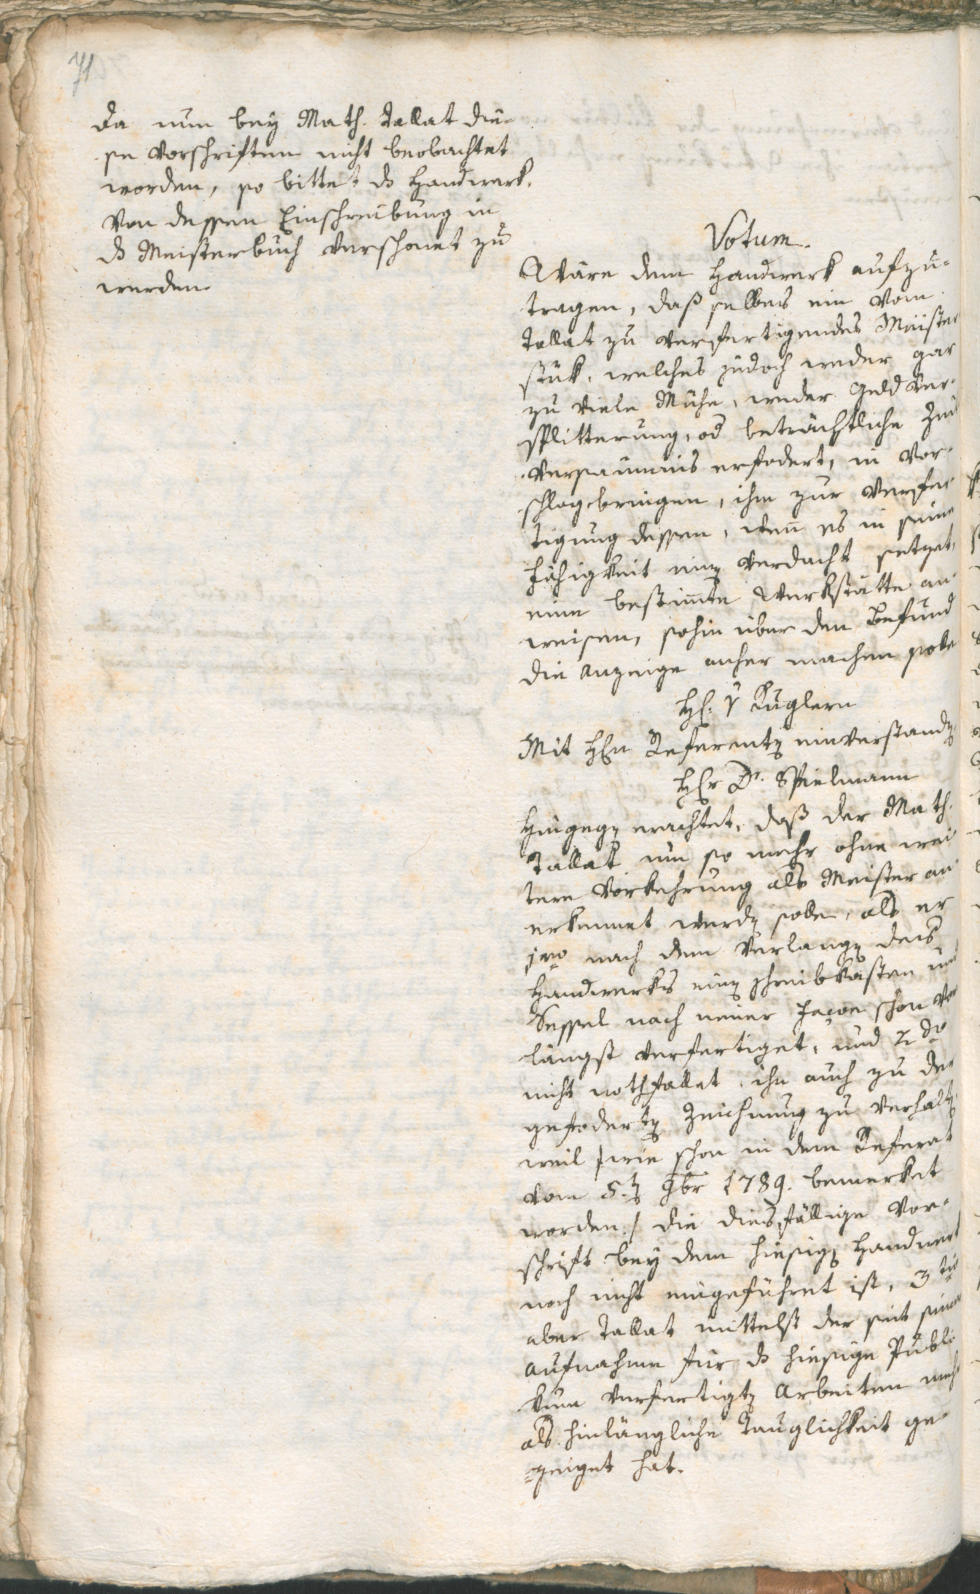 71
da nun bey Math. Tallat die-
se Vorschriften nicht beobachtet
worden, so bittet ds Handwerk,
von dessen Einschreibung in
ds Meisterbuch verschonet zu
werden.
Votum.
Wäre dem Handwerk aufzu-
tragen, daß selbes ein vom
Tallat zu verfertigendes Meister
stük, welches jedoch weder gar
zu viele Mühe, weder Geld Ver-
splitterung, od beträchtliche Zeit
versaumnis erfodert, in Vor-
schlag bringen, ihm zur Verfer
tigung dessen, wenn es in seine
Fähigkeit ein Verdacht setzet,
eine bestimte Werkstätte an-
weisen, sohin über den Befund
die Anzeige anher machen solle
H: v Kuglern
Mit H Referenten einverstanden
Hr Dr. Spielmann
Hingegen erachtet, daß der Math.
Tallat um so mehr ohne wei
tere Vorkehrung als Meister an
erkennet werden solle, als er
1mo nach dem Verlangen des
Handwerks einen Schreibkasten und
Sessel nach neuer Façon schon vor
längst verfertiget, und 2do
nicht nothfallet, ihn auch zu der
gefoderten Zeichnung zu verhalten,
weil /:wie schon in dem Referat
vom 5.ten 9br 1789. bemerket
worden:/ die diesfällige Vor-
schrift bey dem hiesigen Handwerk
noch nicht eingeführet ist, 3tio
aber Tallat mittelst der seit seiner
Aufnahme für ds hiesige Publi
kum verfertigten Arbeiten mehr
als hinlängliche Tauglichkeit ge-
zeiget hat.